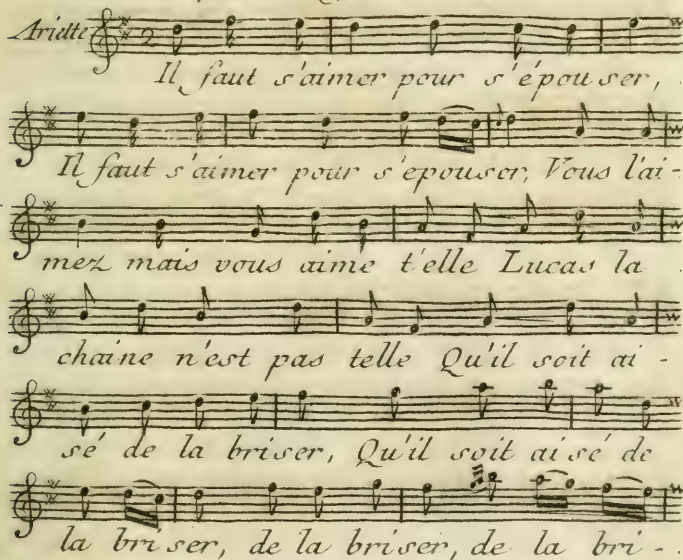 Ariette
Il faut s'aimer pour s'épouser,
Il faut s'aimer pour s'epouser, Vous l'ai-
mez mais vous aime t'elle Lucas la
chaine n'est pas telle Qu'il soit ai-
sé de la briser, Qu'il soit aisé de
la briser, de la briser, de la bri-